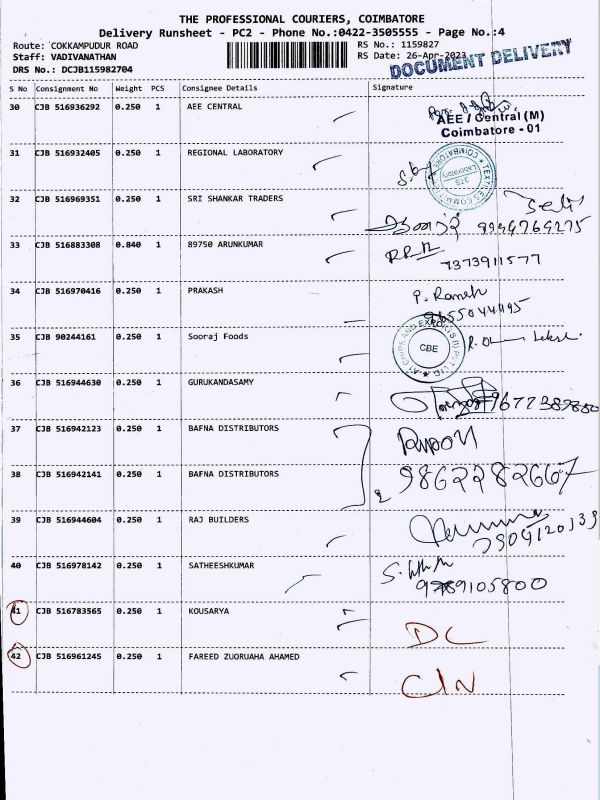 THE PROFESSIONAL COURIERS, COIMBATORE
Delivery Runsheet - PC2 - Phone No.:0422-3505555 - Page No.:4
Route: COKKAMPUDUR ROAD
RS No.: 1159827
Staff: VADIVANATHAN
RS Date: 26-Apr-2023
DRS No.: DCJB115982704
DOCUMENT DELIVERY
S No Consignment No Weight PCS Consignee Details Signature
30 CJB 516936292 0.250 1 AEE CENTRAL
AEE / Central (M)
Coimbatore - 01
31 CJB 516932405 0.250 1 REGIONAL LABORATORY
32 CJB 516969351 0.250 1 SRI SHANKAR TRADERS
33 CJB 516883308 0.840 1 89750 ARUNKUMAR
7373911577
34 CJB 516970416 0.250 1 PRAKASH
P. Ramesh
35 CJB 90244161 0.250 1 Sooraj Foods
CBE
36 CJB 516944630 0.250 1 GURUKANDASAMY
37 CJB 516942123 0.250 1 BAFNA DISTRIBUTORS
38 CJB 516942141 0.250 1 BAFNA DISTRIBUTORS
2 9862282667
39 CJB 516944604 0.250 1 RAJ BUILDERS
40 CJB 516978142 0.250 1 SATHEESHKUMAR
9789105800
41 CJB 516783565 0.250 1 KOUSARYA
DC
42 CJB 516961245 0.250 1 FAREED ZUORUAHA AHAMED
CIN